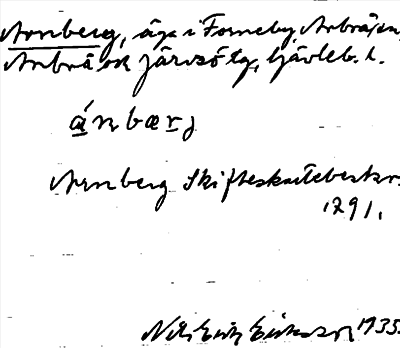 Arnberg, äga i Forneby, Arbrå sn,
Arbrå ok Järvsö tg, Gävleb. l.
á̱ꞃbæṟj
Arnberg Skifteskartebeskr.
1791.
Nils Erik Eriksson 1935